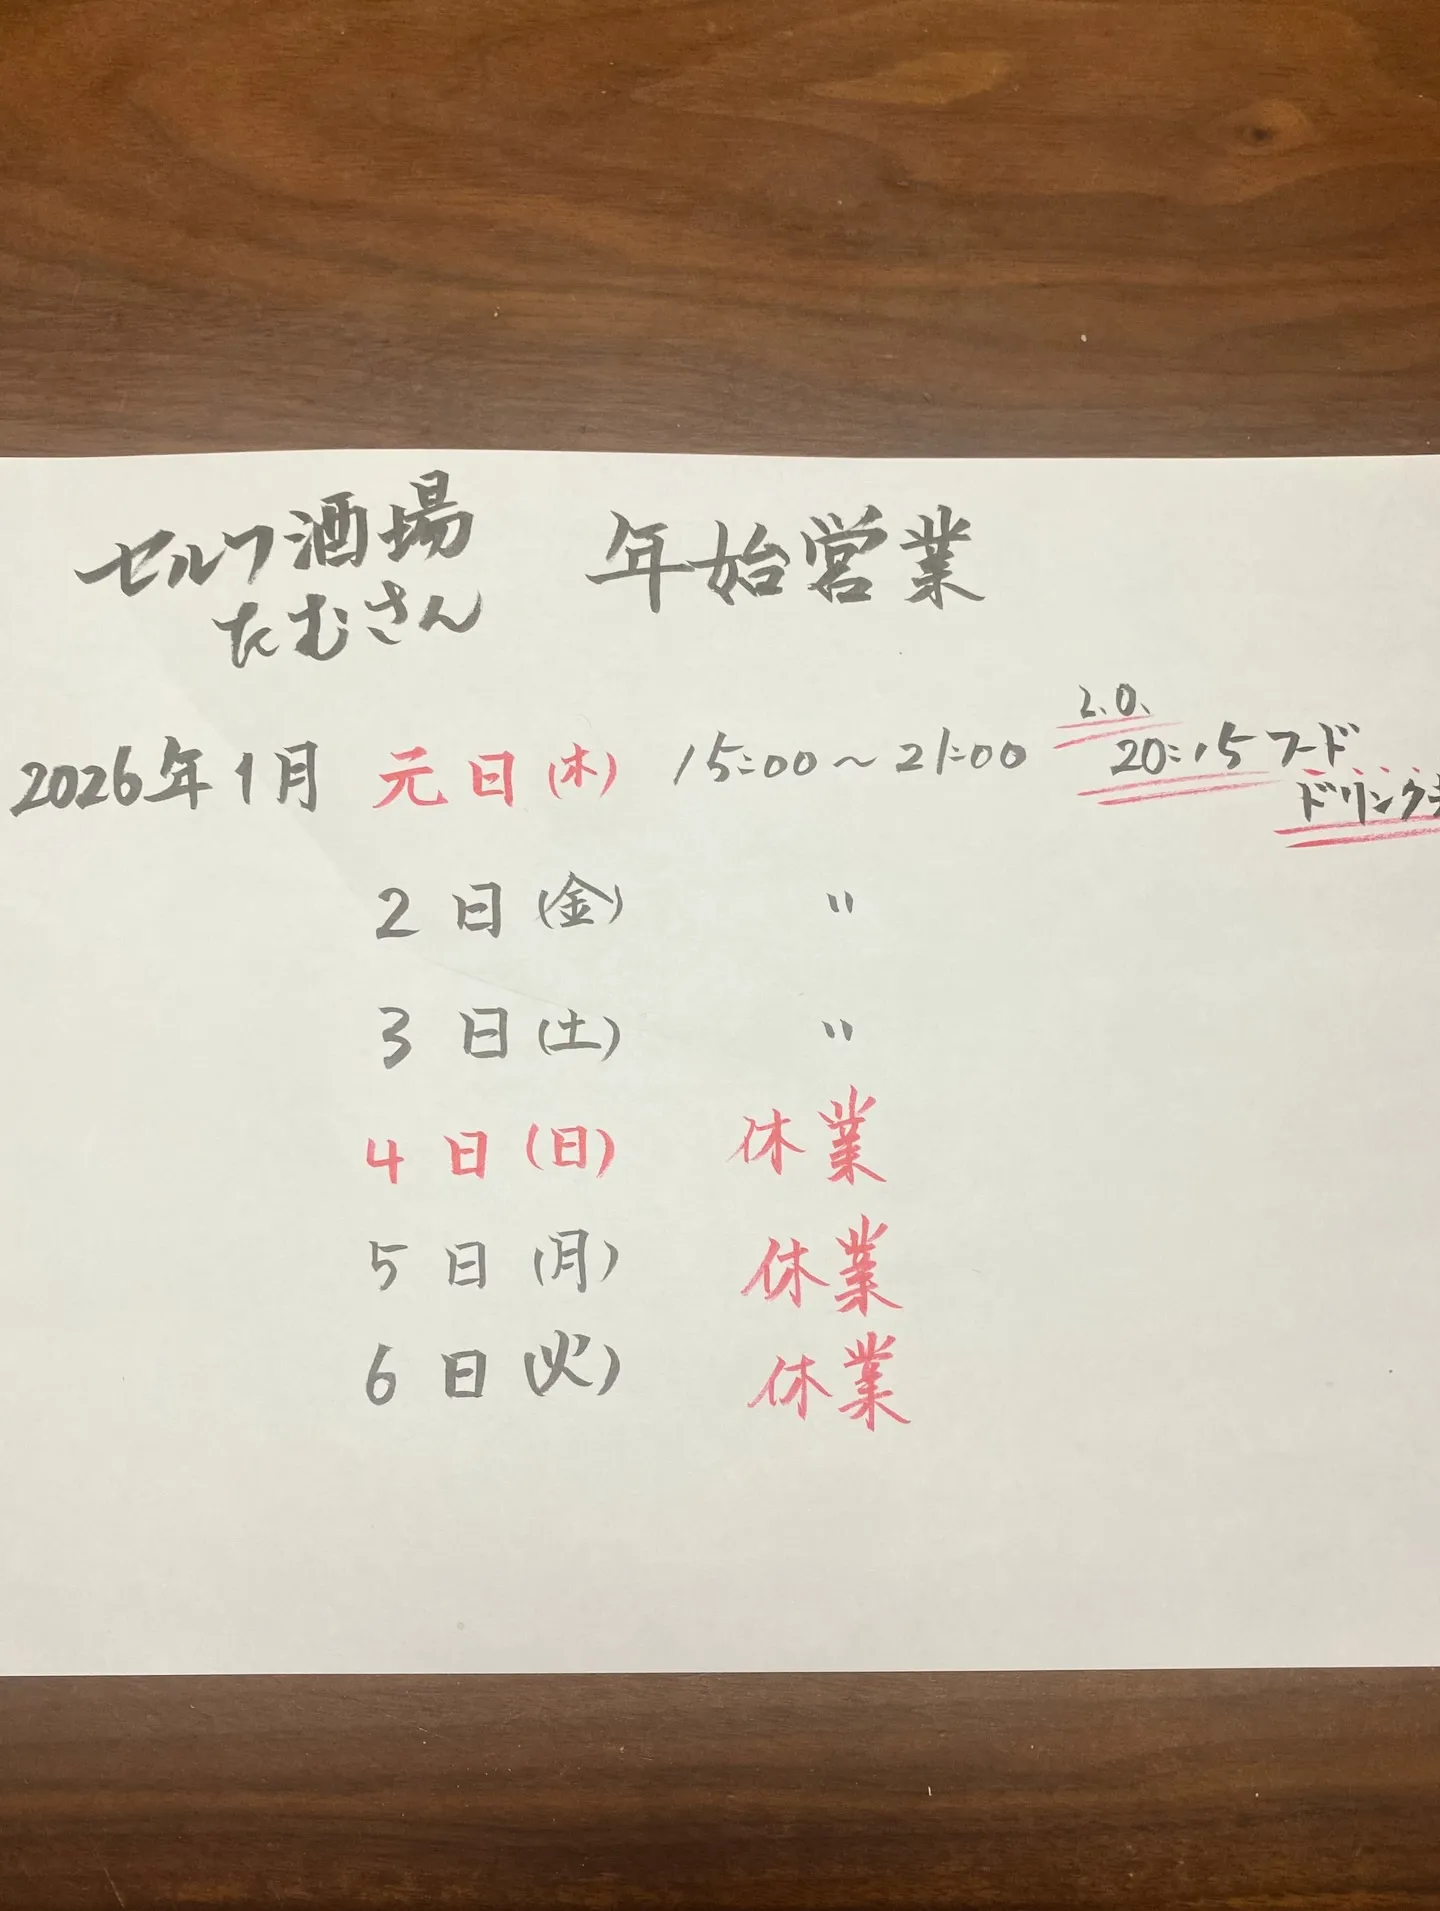 セルフ酒場
たむさん
年始営業
2026年1月 元日(木) 15:00〜21:00 L.O. 20:15 フード
ドリンク
2日(金) 〃
3日(土) 〃
4日(日) 休業
5日(月) 休業
6日(火) 休業